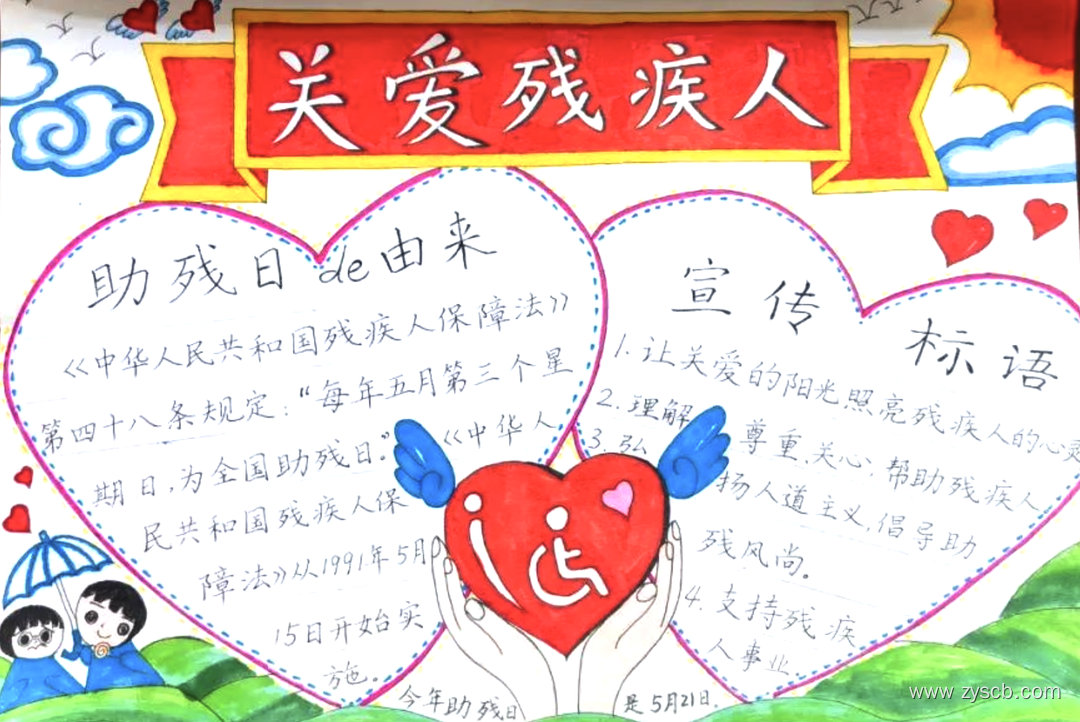 关爱残疾人
助残日de由来
《中华人民共和国残疾人保障法》
第四十八条规定：“每年五月第三个星
期日，为全国助残日。”《中华人
民共和国残疾人保
障法》从1991年5月
15日开始实
施。
宣传标语
1.让关爱的阳光照亮残疾人的心灵
2.理解 尊重.关心.帮助残疾人
3.弘 扬人道主义，倡导助
残风尚。
4.支持残疾
人事业
今年助残日 是5月21日.
www.zyscb.com